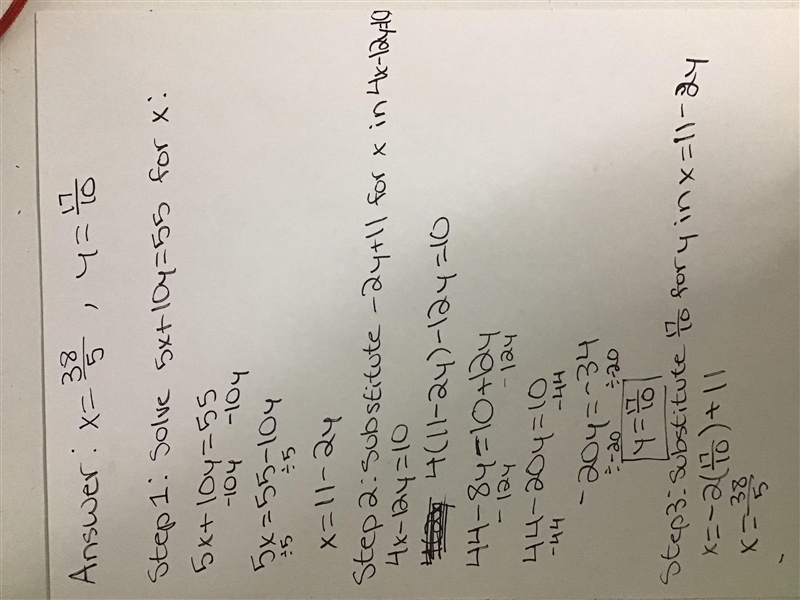 Answer: x = 38/5 , y = 17/10
Step 1: Solve 5x+10y=55 for x:
5x+10y=55
-10y -10y
5x=55-10y
÷5 ÷5
x=11-2y
Step 2: Substitute -2y+11 for x in 4x-12y=10
4x-12y=10
4(11-2y)-12y=10
44-8y=10+12y
-12y -12y
44-20y=10
-44 -44
-20y=-34
÷-20 ÷-20
y=17/10
Step3: Substitute 17/10 for y in x=11-2y
x=-2(17/10)+11
x=38/5